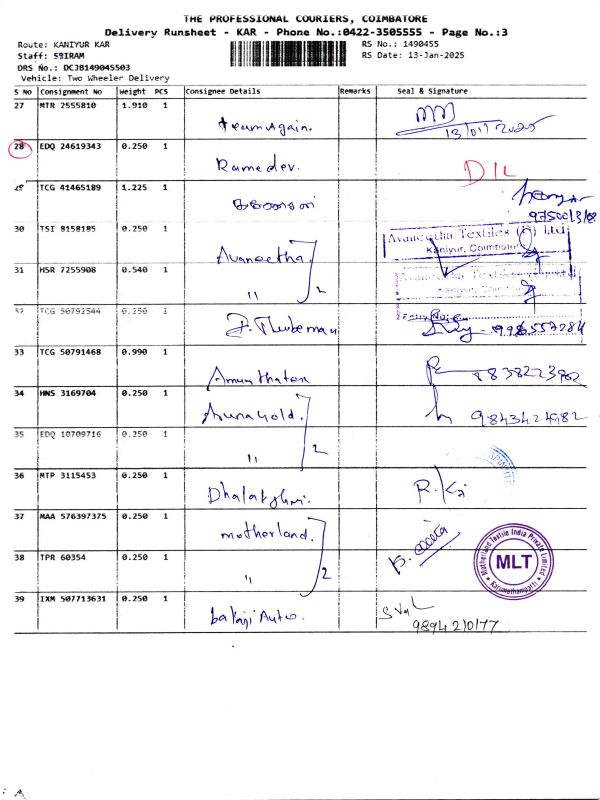 THE PROFESSIONAL COURIERS, COIMBATORE
Delivery Runsheet - KAR - Phone No.:0422-3505555 - Page No.:3
Route: KANIYUR KAR
RS No.: 1490455
Staff: SRIRAM
RS Date: 13-Jan-2025
DRS No.: DCJB149045503
Vehicle: Two Wheeler Delivery
S No Consignment No Weight PCS Consignee Details Remarks Seal & Signature
27 MTR 2555810 1.910 1
13/01/2025
28 EDQ 24619343 0.250 1
Ramedev. D/L
29 TCG 41465189 1.225 1
30 TSI 8158185 0.250 1
Avaneetha Textiles (P) Ltd
Kaniyur, Coimbatore
Avaneetha
31 HSR 7255908 0.540 1
" 2
32 TCG 50792544 0.250 1
33 TCG 50791468 0.990 1
34 HNS 3169704 0.250 1
9843424982
35 EDQ 10709716 0.250 1
" 2
36 MTP 3115453 0.250 1
Dhalakshmi.
37 MAA 576397375 0.250 1
motherland.
Motherland Textile India Private Limited
MLT
Karumathampatti
38 TPR 60354 0.250 1
" 2
39 IXM 507713631 0.250 1
balaji Auto.
9894210177